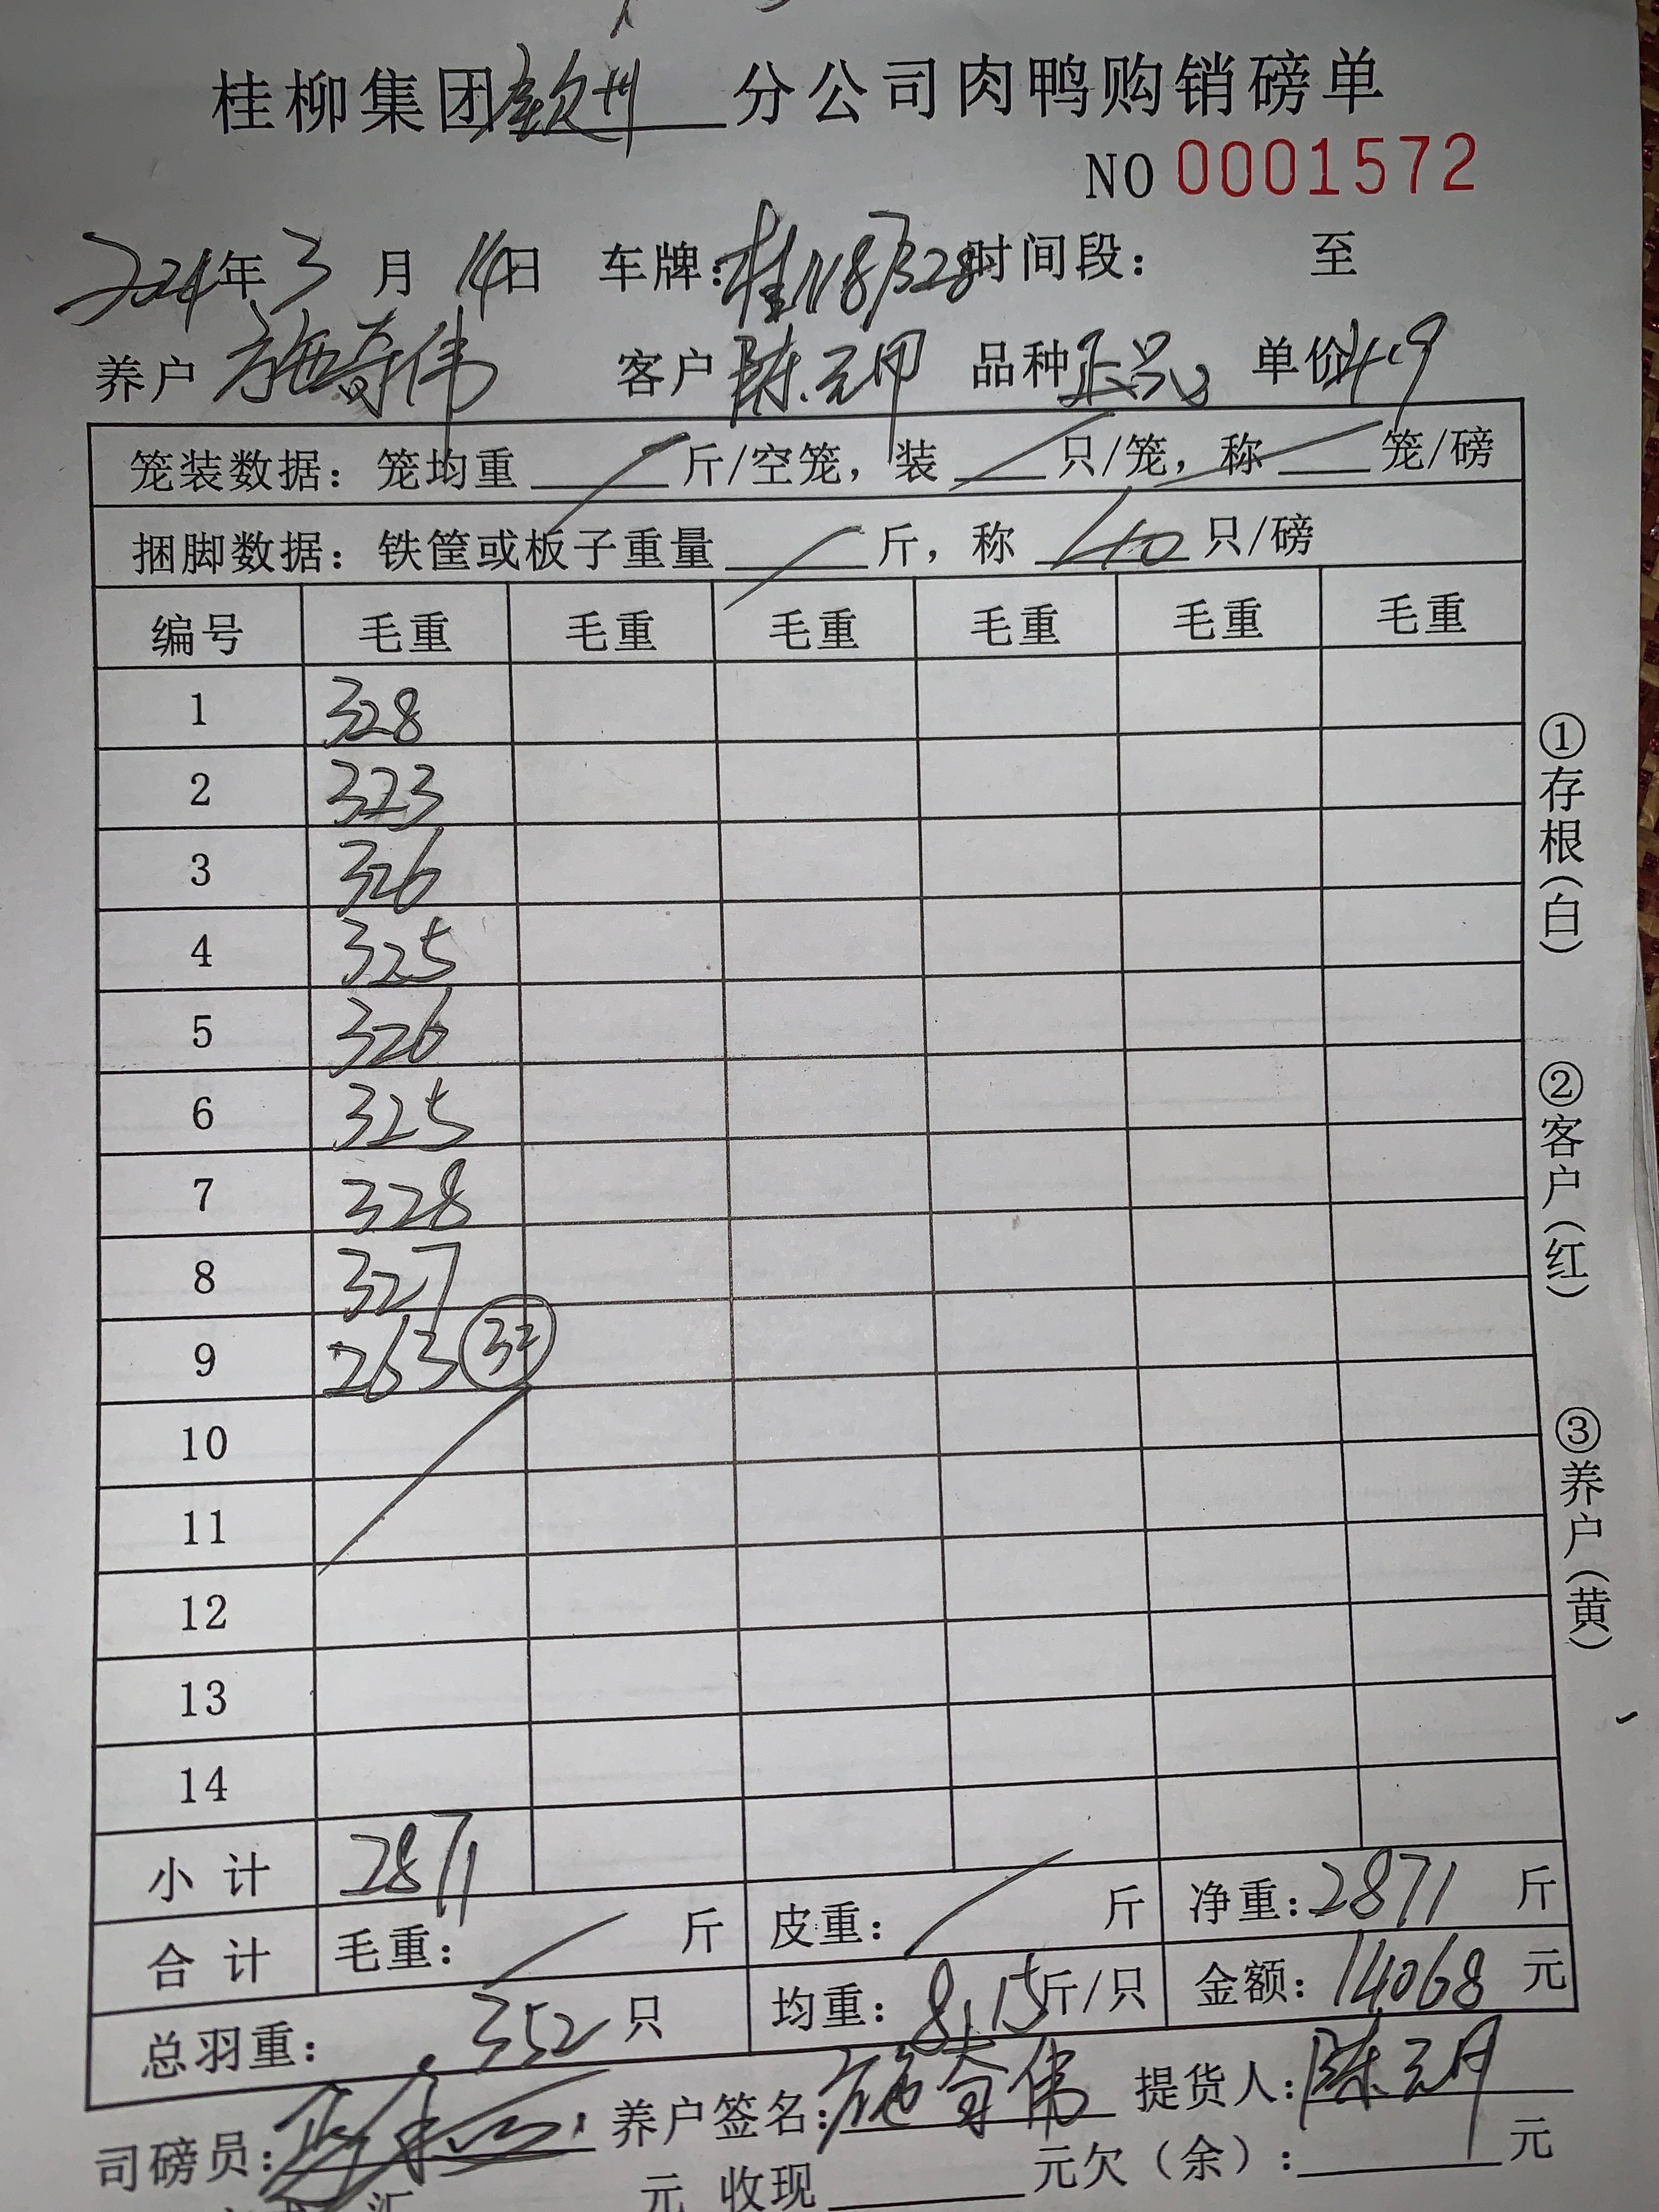 桂柳集团钦州分公司肉鸭购销磅单
NO 0001572
2024年3月14日 车牌:桂N8J328时间段: 至
养户 施奇伟 客户 陈元甲 品种 正品 单价 4.9
笼装数据:笼均重 斤/空笼,装 只/笼,称 笼/磅
捆脚数据:铁筐或板子重量 斤,称 40 只/磅
编号 毛重 毛重 毛重 毛重 毛重 毛重
1 328
2 323
3 326
4 325
5 326
6 325
7 328
8 327
9 263 32
10
11
12
13
14
小计 2871
合计 毛重: 斤 皮重: 斤 净重:2871 斤
总羽重: 352只 均重:8.15斤/只 金额:14068元
司磅员: 养户签名:施奇伟 提货人:陈元甲
元 收现 元欠(余): 元
①存根(白)
②客户(红)
③养户(黄)